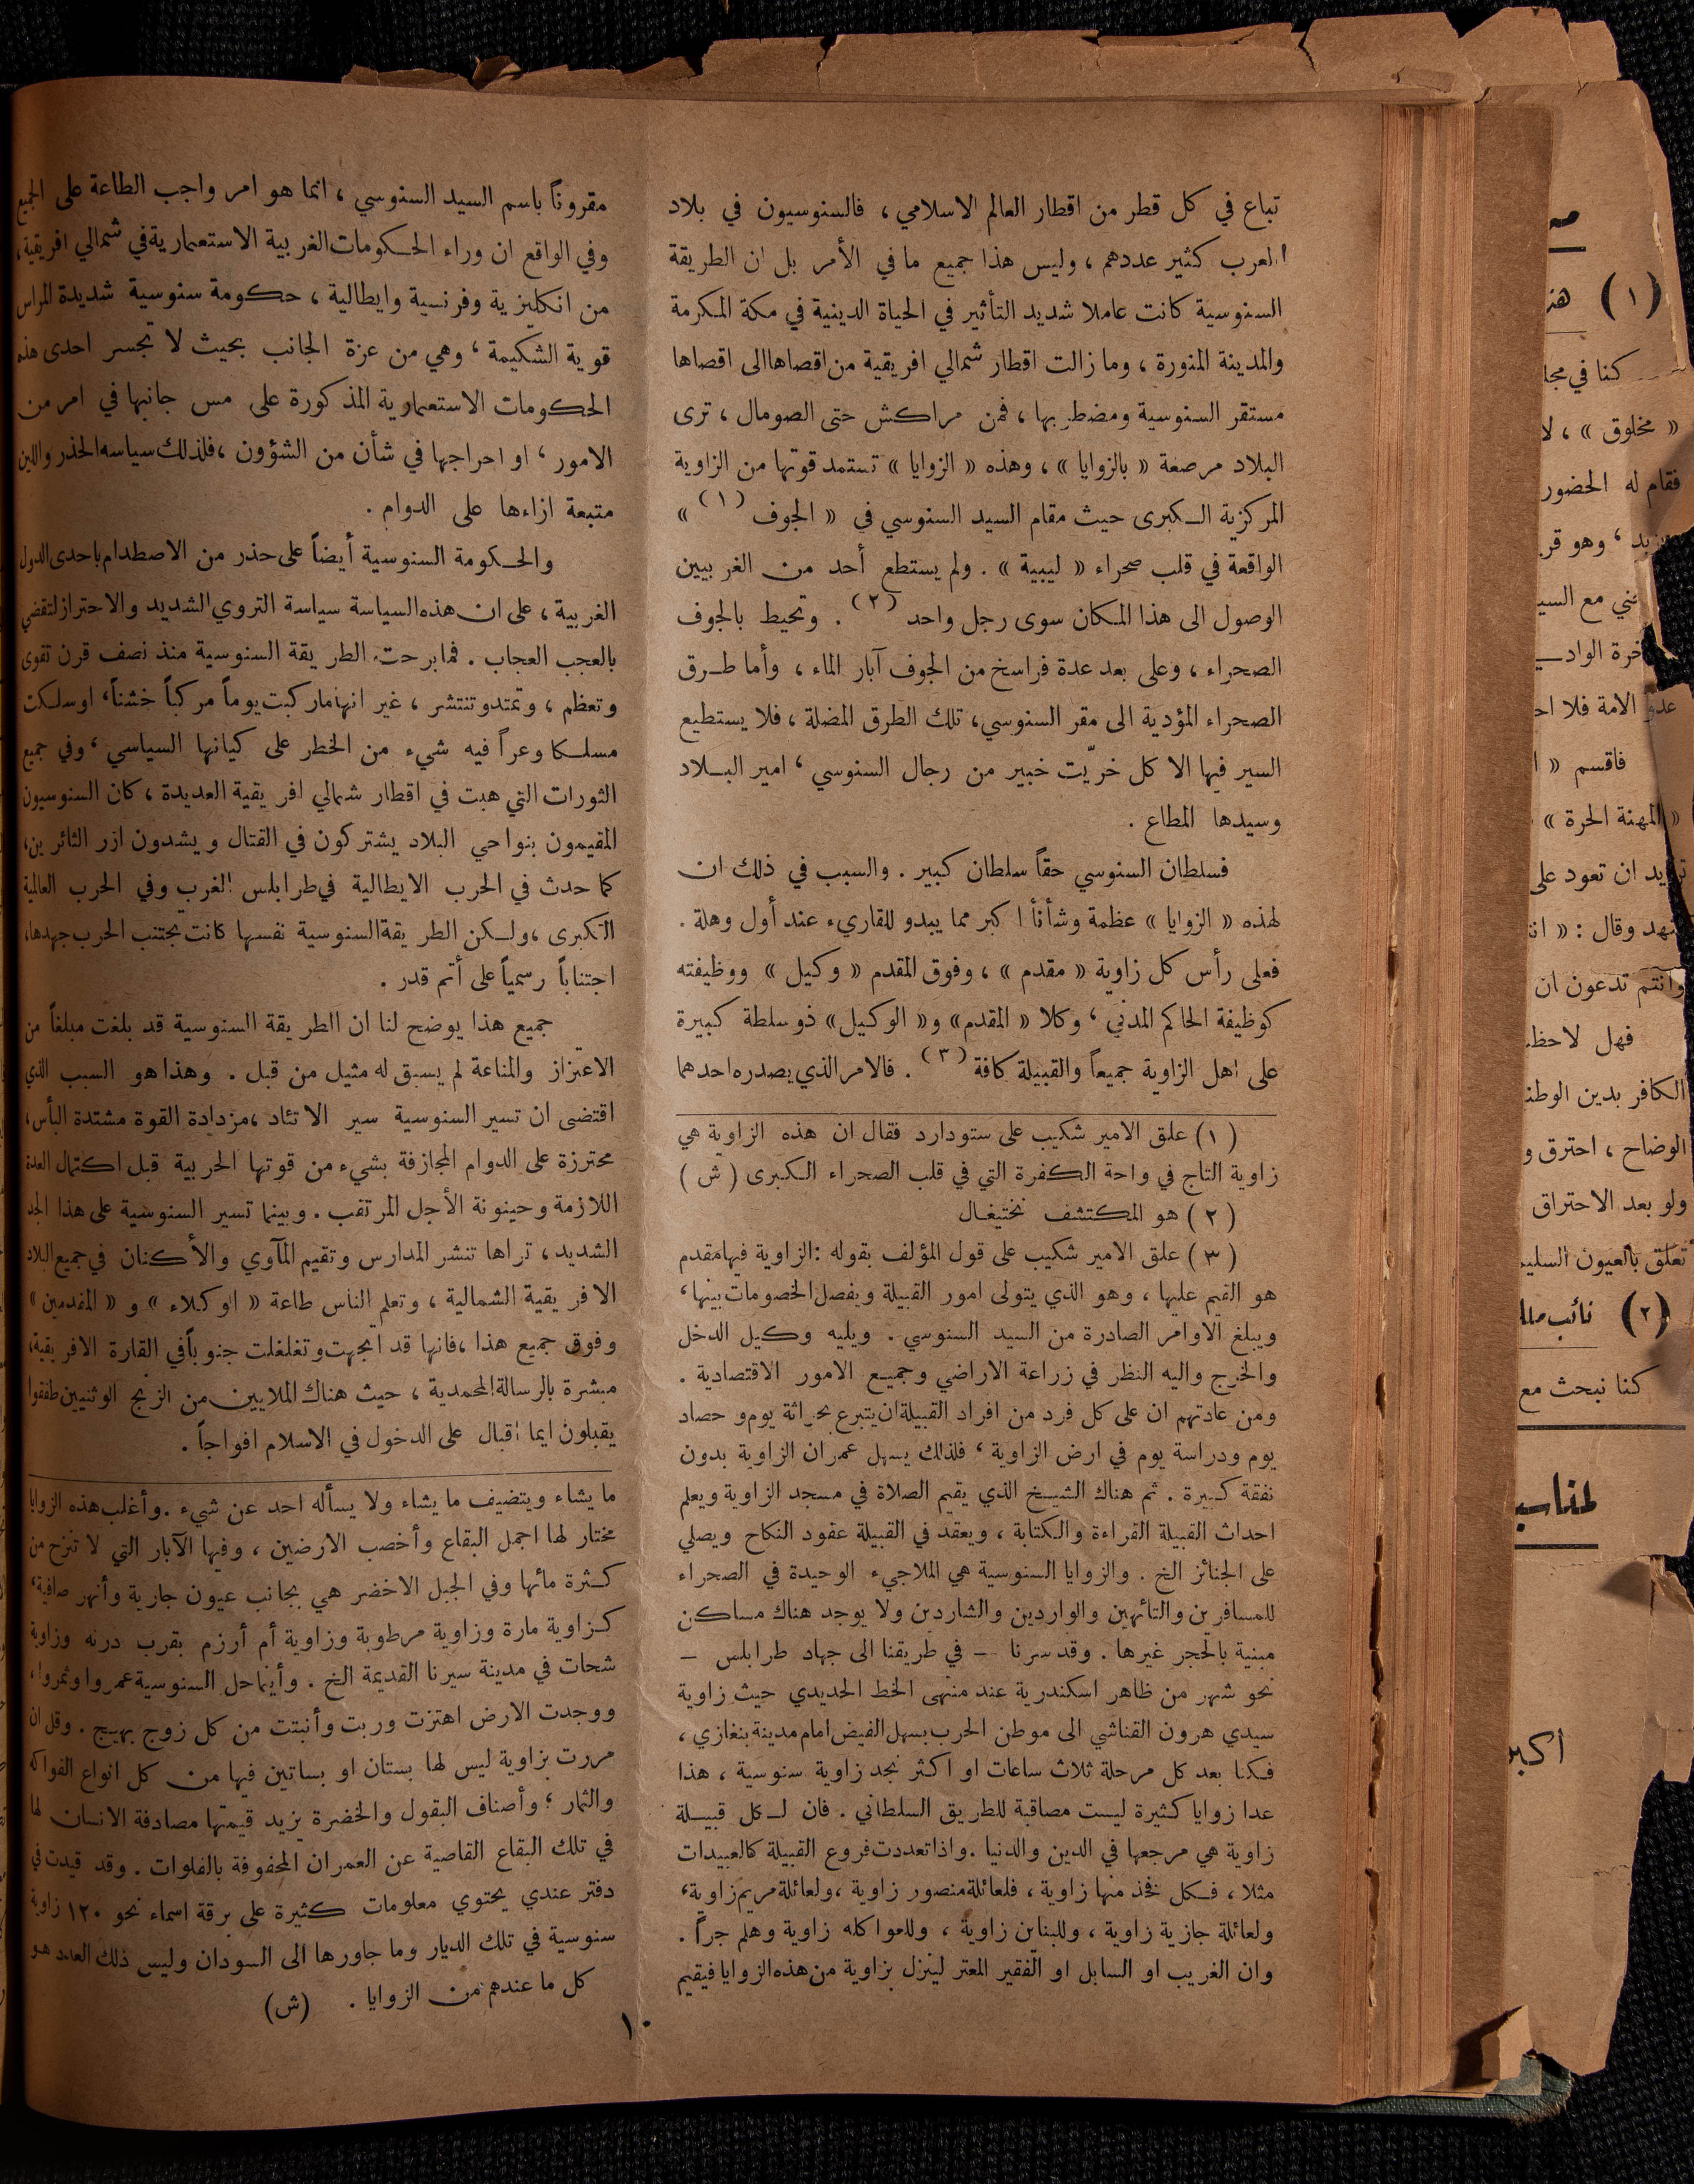 تباع في كل قطر من اقطار العالم الاسلامي، فالسنوسيون في بلاد
العرب كثير عددهم، وليس هذا جميع ما في الأمر بل ان الطريقة
السنوسية كانت عاملا شديد التأثير في الحياة الدينية في مكة المكرمة
والمدينة المنورة، وما زالت اقطار شمالي افريقية من اقصاها الى اقصاها
مستقر السنوسية ومضطربها، فمن مراكش حتى الصومال، ترى
البلاد مرصعة «بالزوايا»، وهذه «الزوايا» تستمد قوتها من الزاوية
المركزية الكبرى حيث مقام السيد السنوسي في «الجوف (١)»
الواقعة في قلب صحراء «ليبية». ولم يستطع أحد من الغربيين
الوصول الى هذا المكان سوى رجل واحد (٢). وتحيط بالجوف
الصحراء، وعلى بعد عدة فراسخ من الجوف آبار الماء، وأما طرق
الصحراء المؤدية الى مقر السنوسي، تلك الطرق المضلة، فلا يستطيع
السير فيها الا كل خرّيت خبير من رجال السنوسي، امير البلاد
وسيدها المطاع.
فسلطان السنوسي حقاً سلطان كبير. والسبب في ذلك ان
لهذه «الزوايا» عظمة وشأنأ اكبر مما يبدو للقاريء عند أول وهلة.
فعلى رأس كل زاوية «مقدم»، وفوق المقدم «وكيل» ووظيفته
كوظيفة الحاكم المدني، وكلا «المقدم» و«الوكيل» ذو سلطة كبيرة
على اهل الزاوية جميعاً والقبيلة كافة (٣). فالامر الذي يصدره احدهما
(١) علق الامير شكيب على ستودارد فقال ان هذه الزاوية هي
زاوية التاج في واحة الكفرة التي في قلب الصحراء الكبرى (ش)
(٢) هو المكتشف نختيغال
(٣) علق الامير شكيب على قول المؤلف بقوله: الزاوية فيها مقدم
هو القيم عليها، وهو الذي يتولى امور القبيلة ويفصل الخصومات بينها،
ويبلغ الاوامر الصادرة من السيد السنوسي. ويليه وكيل الدخل
والخرج واليه النظر في زراعة الاراضي وجميع الامور الاقتصادية.
ومن عادتهم ان على كل فرد من افراد القبيلة ان يتبرع بحراثة يوم و حصاد
يوم ودراسة يوم في ارض الزاوية، فلذلك يسهل عمران الزاوية بدون
نفقة كبيرة. ثم هناك الشيخ الذي يقيم الصلاة في مسجد الزاوية ويعلم
احداث القبيلة القراءة والكتابة، ويعقد في القبيلة عقود النكاح ويصلي
على الجنائز الخ. والزوايا السنوسية هي الملاجيء الوحيدة في الصحراء
للمسافرين والتائهين والواردين والشاردين ولا يوجد هناك مساكن
مبنية بالحجر غيرها. وقد سرنا – في طريقنا الى جهاد طرابلس –
نحو شهر من ظاهر اسكندرية عند منتهى الخط الحديدي حيث زاوية
سيدي هرون القناشي الى موطن الحرب بسهل الفيض امام مدينة بنغازي،
فكنا بعد كل مرحلة ثلاث ساعات او اكثر نجد زاوية سنوسية، هذا
عدا زوايا كثيرة ليست مصاقبة للطريق السلطاني. فان لكل قبيلة
زاوية هي مرجعها في الدين والدنيا. واذا تعددت فروع القبيلة كالعبيدات
مثلا، فكل فخذ منها زاوية، فلعائلة منصور زاوية، ولعائلة مريم زاوية،
ولعائلة جازية زاوية، وللبناين زاوية، وللعواكله زاوية وهلم جراً.
وان الغريب او السابل او الفقير المعتر لينزل بزاوية من هذه الزوايا فيقيم
مقروناً باسم السيد السنوسي، انما هو امر واجب الطاعة على الجميع
وفي الواقع ان وراء الحكومات الغربية الاستعمارية في شمالي افريقية،
من انكليزية وفرنسية وايطالية، حكومة سنوسية شديدة المراس
قوية الشكيمة، وهي من عزة الجانب بحيث لا تجسر احدى هذه
الحكومات الاستعماوية المذكورة على مس جانبها في امر من
الامور، او احراجها في شأن من الشؤون، فلذلك سياسه الحذر واللين
متبعة ازاءها على الدوام.
والحكومة السنوسية أيضاً على حذر من الاصطدام باحدى الدول
الغربية، على ان هذه السياسة سياسة التروي الشديد والاحتراز لتقضي
بالعجب العجاب. فما برحت الطريقة السنوسية منذ نصف قرن تقوى
وتعظم، وتمتد وتنتشر، غير انها ما ركبت يوماً مركباً خشناً، او سلكت
مسلكا وعراً فيه شيء من الخطر على كيانها السياسي، وفي جميع
الثورات التي هبت في اقطار شمالي افريقية العديدة، كان السنوسيون
المقيمون بنواحي البلاد يشتركون في القتال ويشدون ازر الثائرين،
كما حدث في الحرب الايطالية في طرابلس الغرب وفي الحرب العالمية
الكبرى، ولكن الطريقة السنوسية نفسها كانت تجتنب الحرب جهدها،
اجتناباً رسمياً على أتم قدر.
جميع هذا يوضح لنا ان الطريقة السنوسية قد بلغت مبلغاً من
الاعتزاز والمناعة لم يسبق له مثيل من قبل. وهذا هو السبب الذي
اقتضى ان تسير السنوسية سير الاتئاد، مزدادة القوة مشتدة البأس،
محترزة على الدوام المجازفة بشيء من قوتها الحربية قبل اكتمال العدة
اللازمة وحينونة الأجل المرتقب. وبينما تسير السنوسية على هذا الجد
الشديد، تراها تنشر المدارس وتقيم المآوي والأكنان في جميع البلاد
الافريقية الشمالية، وتعلم الناس طاعة «الوكلاء» و«المقدمين»
وفوق جميع هذا، فانها قد اتجهت وتغلغلت جنوباً في القارة الافريقية،
مبشرة بالرسالة المحمدية، حيث هناك الملايين من الزنج الوثنيين طفقوا
يقبلون ايما اقبال على الدخول في الاسلام افواجاً.
ما يشاء ويتضيف ما يشاء ولا يسأله احد عن شيء. وأغلب هذه الزوايا
مختار لها اجمل البقاع وأخصب الارضين، وفيها الآبار التي لا تنزح من
كثرة مائها وفي الجبل الاخضر هي بجانب عيون جارية وأنهر صافية،
كزاوية مارة وزاوية مرطوبة وزاوية أم أرزم بقرب درنه وزاوية
شحات في مدينة سيرنا القديمة الخ. وأينما حل السنوسية عمروا وثمروا،
ووجدت الارض اهتزت وربت وأنبتت من كل زوج بهيج. وقل ان
مررت بزاوية ليس لها بستان او بساتين فيها من كل انواع الفواكه
والثمار؛ وأصناف البقول والخضرة يزيد قيمتها مصادفة الانسان لها
في تلك البقاع القاصية عن العمران المحفوفة بالفلوات. وقد قيدت في
دفتر عندي يحتوي معلومات كثيرة على برقة اسماء نحو ١٢٠ زاوية
سنوسية في تلك الديار وما جاورها الى السودان وليس ذلك العدد هو
كل ما عندهم من الزوايا. (ش)
١٠
(١) هنر
كنا في مجا
«مخلوق»، لا
فقام له الحضور
يد، وهو قر
ني مع السيـ
خرة الواد
عدو الامة فلا اح
فاقسم «ا
«المهنة الحرة»
تريد ان تعود على
تنهد وقال: «انت
وانتم تدعون ان
فهل لاحظ
الكافر بدين الوطنـ
الوضاح، احترق و
ولو بعد الاحتراق
تعلق بالعيون السليمـ
(٢) نائب
كنا نبحث مع
لمناسبـ
أكبر